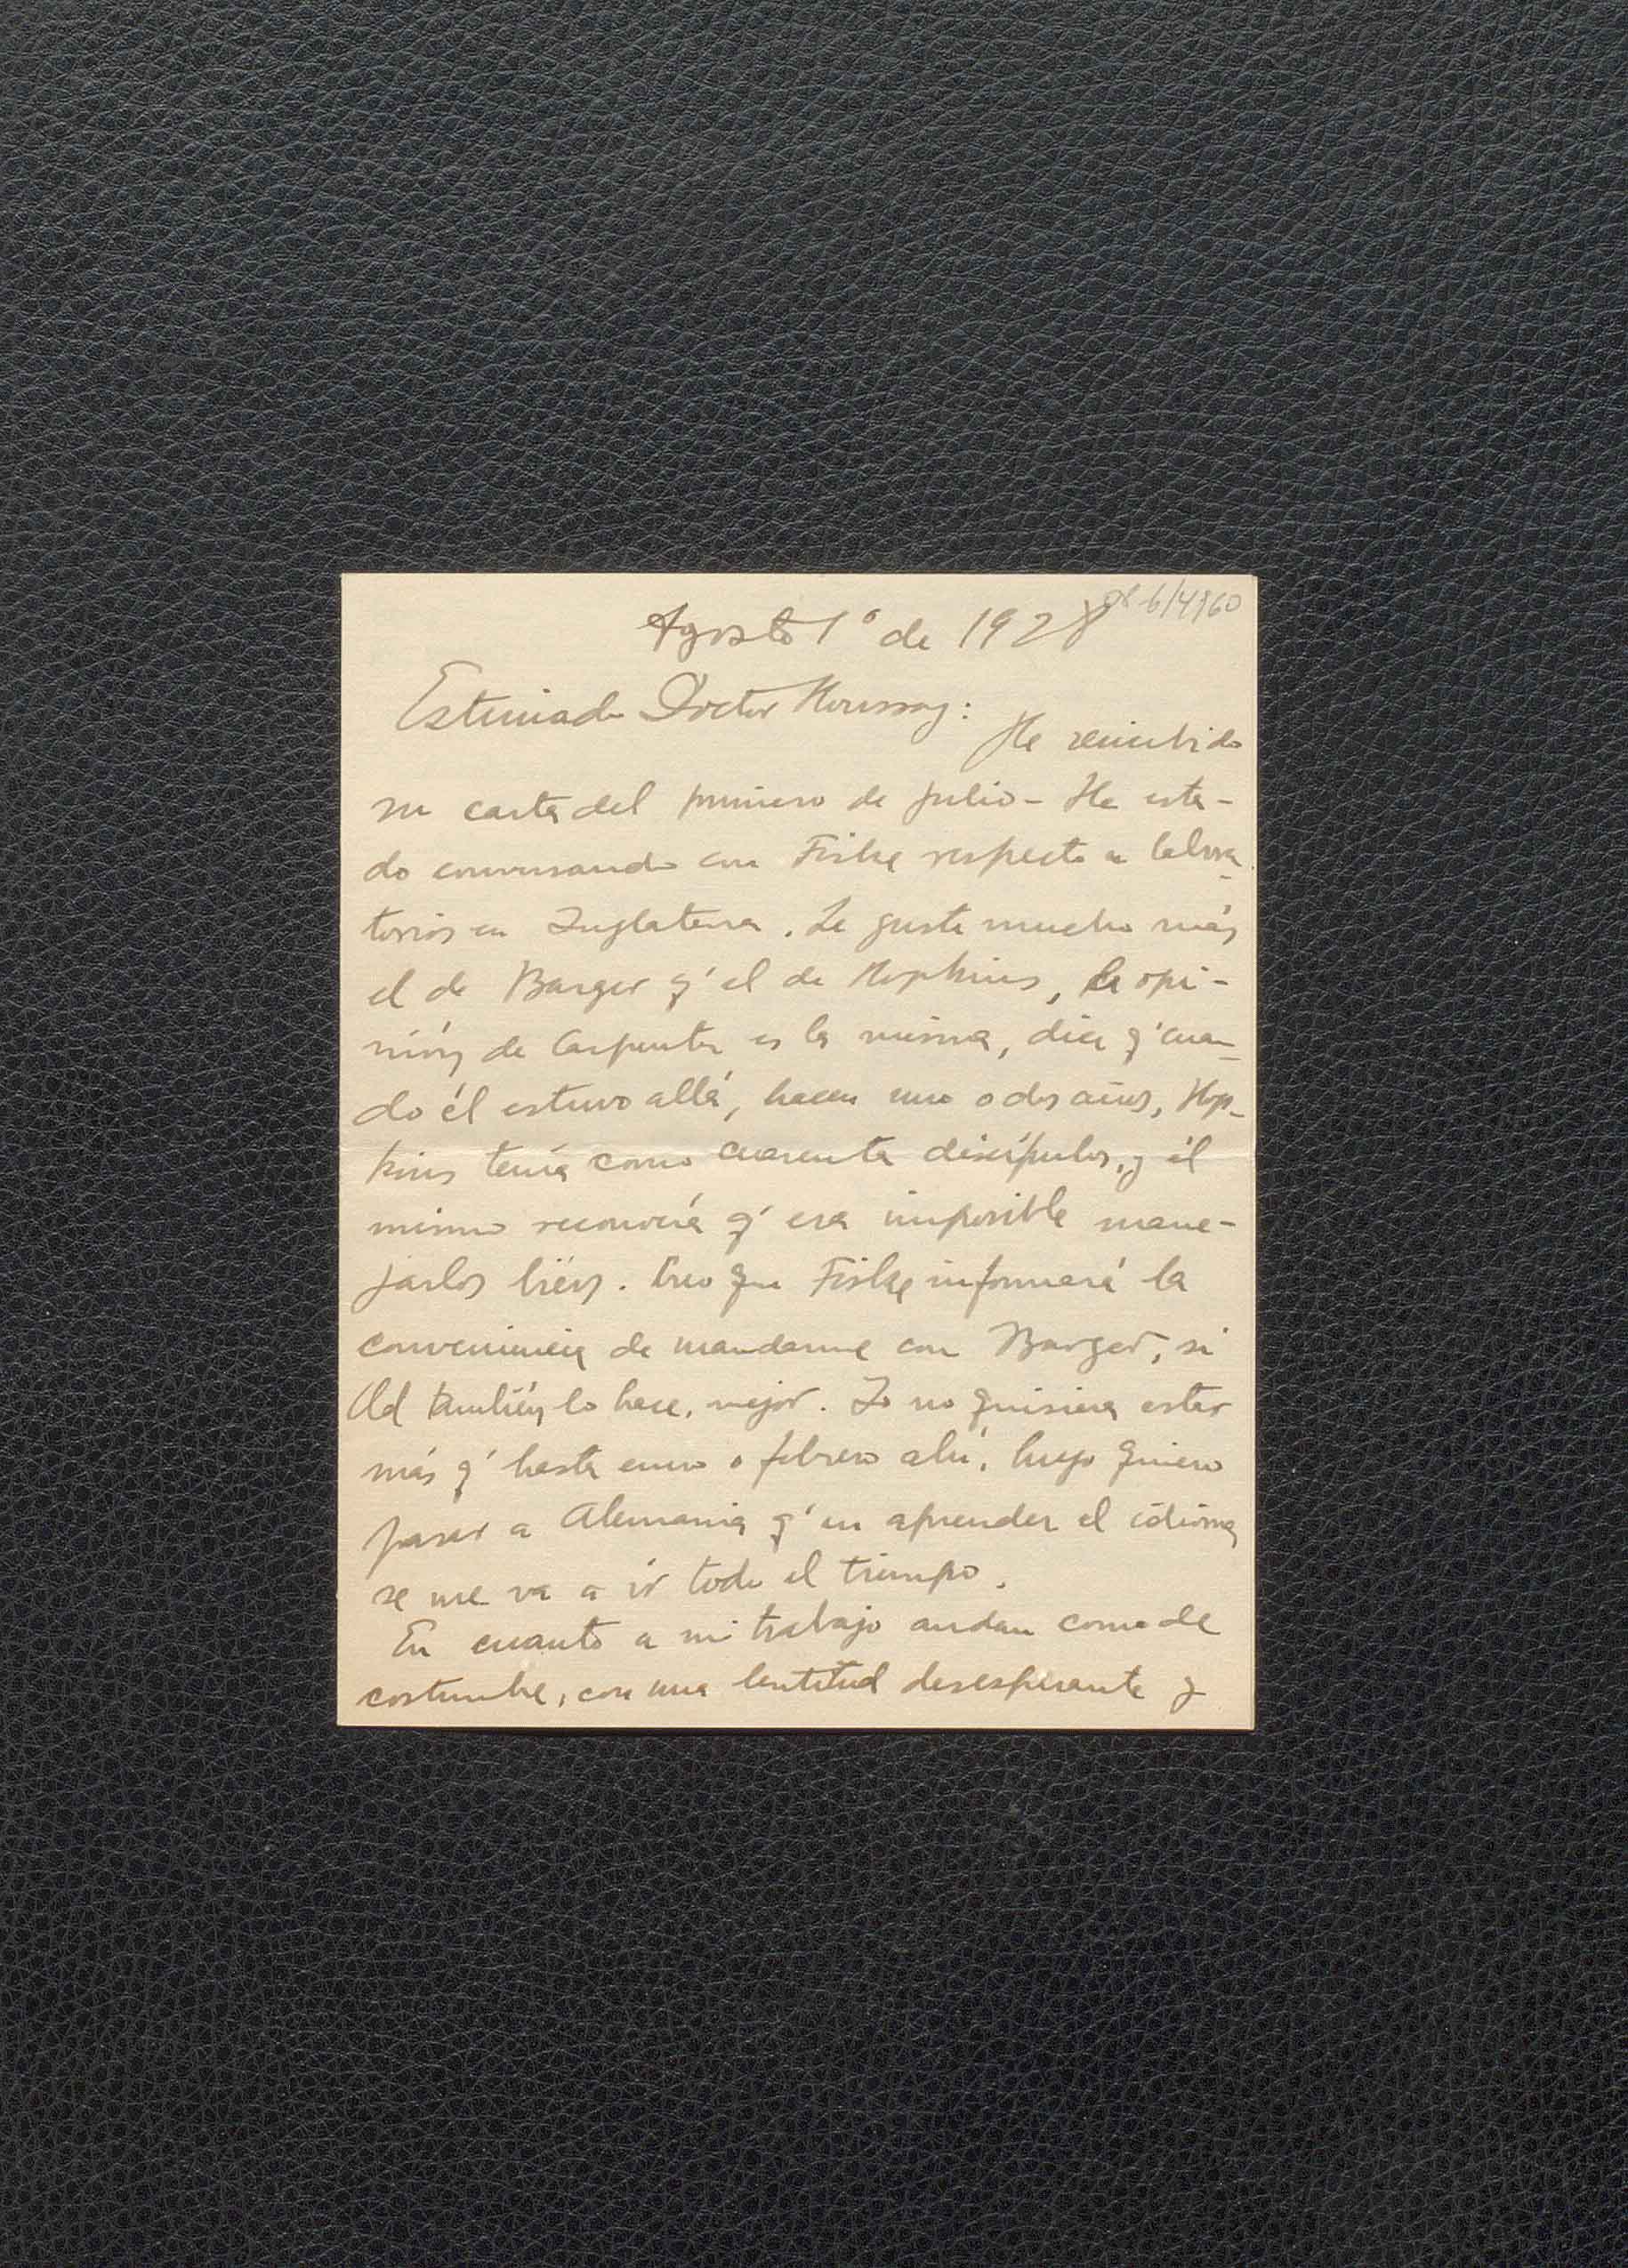 Agosto 1º de 1928
6/4160
Estimado Doctor Houssay:
He recibido
su carta del primero de julio - He esta-
do conversando con Fiske respecto a labora-
torios en Inglaterra. Le gusta mucho más
el de Barger q' el de Hopkins, la opi-
nión de Carpenter es la misma, dice q' cuan-
do él estuvo allá, hacen uno o dos años, Hop-
kins tenía como cuarenta discípulos, y él
mismo reconocía q' era imposible mane-
jarlos bién. Creo que Fiske informará la
conveniencia de mandarme con Barger, si
Ud también lo hace, mejor. Yo no quisiera estar
más q' hasta enero o febrero ahí, luego quiero
pasar a Alemania q' en aprender el idioma
se me va a ir todo el tiempo.
En cuanto a mi trabajo andan como de
costumbre, con una lentitud desesperante y